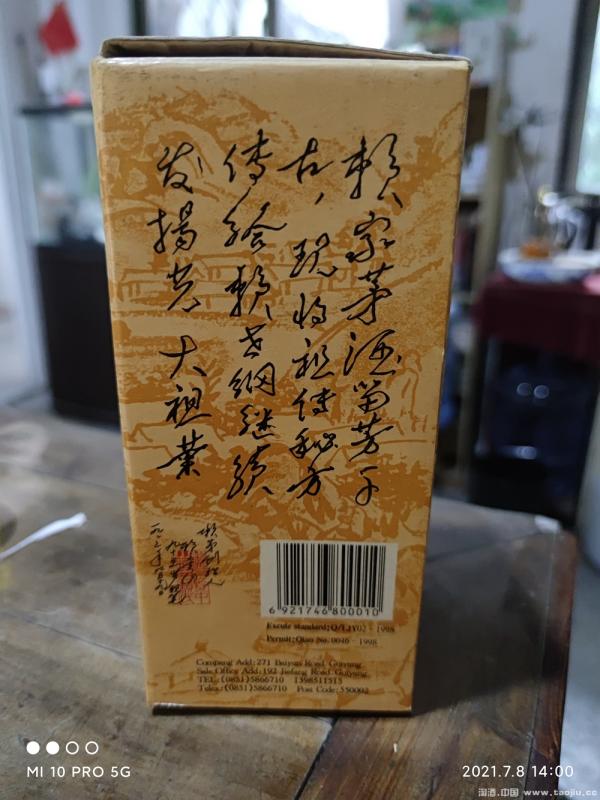 赖家茅酒留芳千
古，现将祖传秘方
传给赖世纲继续
发揚光大祖業
6 921746 800010
Excute standard:Q/LJY02-1998
Permit:Qian No. 0046-1998
Company Add: 271 Baiyun Road, Guiyang
Sale Office Add: 192 Jiefang Road, Guiyang
TEL:(0851)5866710 1398511515
Telex:(0851)5866710 Post Code:550002
MI 10 PRO 5G
2021.7.8 14:00
淘酒.中国 www.taojiu.cc